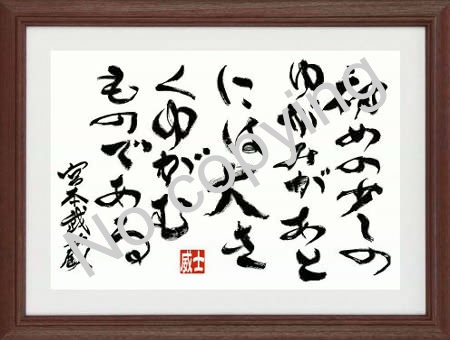 初めの少しの
ゆがみがあと
には大き
くゆがむ
ものである
宮本武蔵
士威
No copying